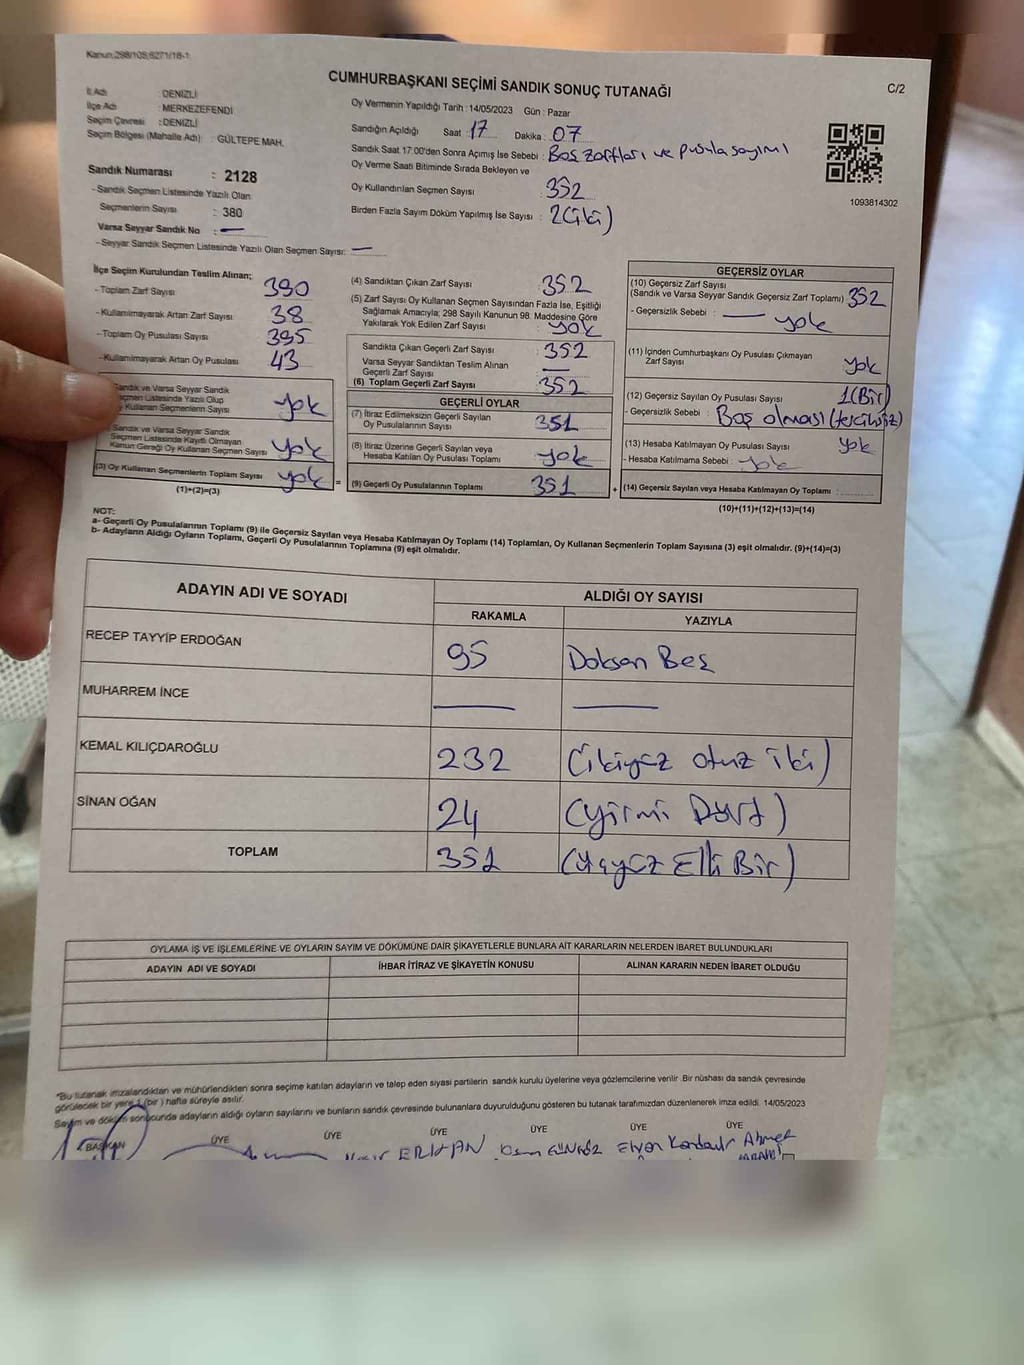 Kanun:298/105;6271/18-1
CUMHURBAŞKANI SEÇİMİ SANDIK SONUÇ TUTANAĞI
C/2
İl Adı : DENİZLİ
İlçe Adı : MERKEZEFENDİ
Seçim Çevresi : DENİZLİ
Seçim Bölgesi (Mahalle Adı) : GÜLTEPE MAH.
Oy Vermenin Yapıldığı Tarih : 14/05/2023 Gün : Pazar
Sandığın Açıldığı Saat : 17 Dakika : 07
Sandık Saat 17:00'den Sonra Açımış İse Sebebi : Boş zarfları ve pusula sayımı
Oy Verme Saati Bitiminde Sırada Bekleyen ve
Oy Kullandırılan Seçmen Sayısı : 352
Birden Fazla Sayım Döküm Yapılmış İse Sayısı : 2(iki)
1093814302
Sandık Numarası : 2128
- Sandık Seçmen Listesinde Yazılı Olan
Seçmenlerin Sayısı : 380
Varsa Seyyar Sandık No : —
- Seyyar Sandık Seçmen Listesinde Yazılı Olan Seçmen Sayısı: —
İlçe Seçim Kurulundan Teslim Alınan;
- Toplam Zarf Sayısı 390
- Kullanılmayarak Artan Zarf Sayısı 38
- Toplam Oy Pusulası Sayısı 395
- Kullanılmayarak Artan Oy Pusulası 43
Sandık ve Varsa Seyyar Sandık
Seçmen Listesinde Yazılı Olup
Oy Kullanan Seçmenlerin Sayısı yok
Sandık ve Varsa Seyyar Sandık
Seçmen Listesinde Kayıtlı Olmayan
Kanun Gereği Oy Kullanan Seçmen Sayısı yok
(3) Oy Kullanan Seçmenlerin Toplam Sayısı yok =
(1)+(2)=(3)
(4) Sandıktan Çıkan Zarf Sayısı 352
(5) Zarf Sayısı Oy Kullanan Seçmen Sayısından Fazla İse, Eşitliği
Sağlamak Amacıyla; 298 Sayılı Kanunun 98. Maddesine Göre
Yakılarak Yok Edilen Zarf Sayısı : yok
Sandıkta Çıkan Geçerli Zarf Sayısı : 352
Varsa Seyyar Sandıktan Teslim Alınan
Geçerli Zarf Sayısı —
(6) Toplam Geçerli Zarf Sayısı 352
GEÇERLİ OYLAR
(7) İtiraz Edilmeksizin Geçerli Sayılan
Oy Pusulalarının Sayısı 351
(8) İtiraz Üzerine Geçerli Sayılan veya
Hesaba Katılan Oy Pusulası Toplamı yok
(9) Geçerli Oy Pusulalarının Toplamı 351 +
GEÇERSİZ OYLAR
(10) Geçersiz Zarf Sayısı
(Sandık ve Varsa Seyyar Sandık Geçersiz Zarf Toplamı) 352
- Geçersizlik Sebebi : — yok
(11) İçinden Cumhurbaşkanı Oy Pusulası Çıkmayan
Zarf Sayısı yok
(12) Geçersiz Sayılan Oy Pusulası Sayısı 1(Bir)
- Geçersizlik Sebebi : Boş olması (tercihsiz)
(13) Hesaba Katılmayan Oy Pusulası Sayısı yok
- Hesaba Katılmama Sebebi : yok
(14) Geçersiz Sayılan veya Hesaba Katılmayan Oy Toplamı :
(10)+(11)+(12)+(13)=(14)
NOT:
a- Geçerli Oy Pusulalarının Toplamı (9) ile Geçersiz Sayılan veya Hesaba Katılmayan Oy Toplamı (14) Toplamları, Oy Kullanan Seçmenlerin Toplam Sayısına (3) eşit olmalıdır. (9)+(14)=(3)
b- Adayların Aldığı Oyların Toplamı, Geçerli Oy Pusulalarının Toplamına (9) eşit olmalıdır.
ADAYIN ADI VE SOYADI
ALDIĞI OY SAYISI
RAKAMLA YAZIYLA
RECEP TAYYİP ERDOĞAN 95 Doksan Beş
MUHARREM İNCE — —
KEMAL KILIÇDAROĞLU 232 (ikiyüz otuz iki)
SİNAN OĞAN 24 (yirmi Dört)
TOPLAM 351 (üçyüz Elli Bir)
OYLAMA İŞ VE İŞLEMLERİNE VE OYLARIN SAYIM VE DÖKÜMÜNE DAİR ŞİKAYETLERLE BUNLARA AİT KARARLARIN NELERDEN İBARET BULUNDUKLARI
ADAYIN ADI VE SOYADI İHBAR İTİRAZ VE ŞİKAYETİN KONUSU ALINAN KARARIN NEDEN İBARET OLDUĞU
*Bu tutanak imzalandıktan ve mühürlendikten sonra seçime katılan adayların ve talep eden siyasi partilerin sandık kurulu üyelerine veya gözlemcilerine verilir. Bir nüshası da sandık çevresinde
görülecek bir yere 1 (bir ) hafta süreyle asılır.
Sayım ve döküm sonucunda adayların aldığı oyların sayılarını ve bunların sandık çevresinde bulunanlara duyurulduğunu gösteren bu tutanak tarafımızdan düzenlenerek imza edildi. 14/05/2023
BAŞKAN ÜYE ÜYE ÜYE ÜYE ÜYE ÜYE
ERKAN Ahmet